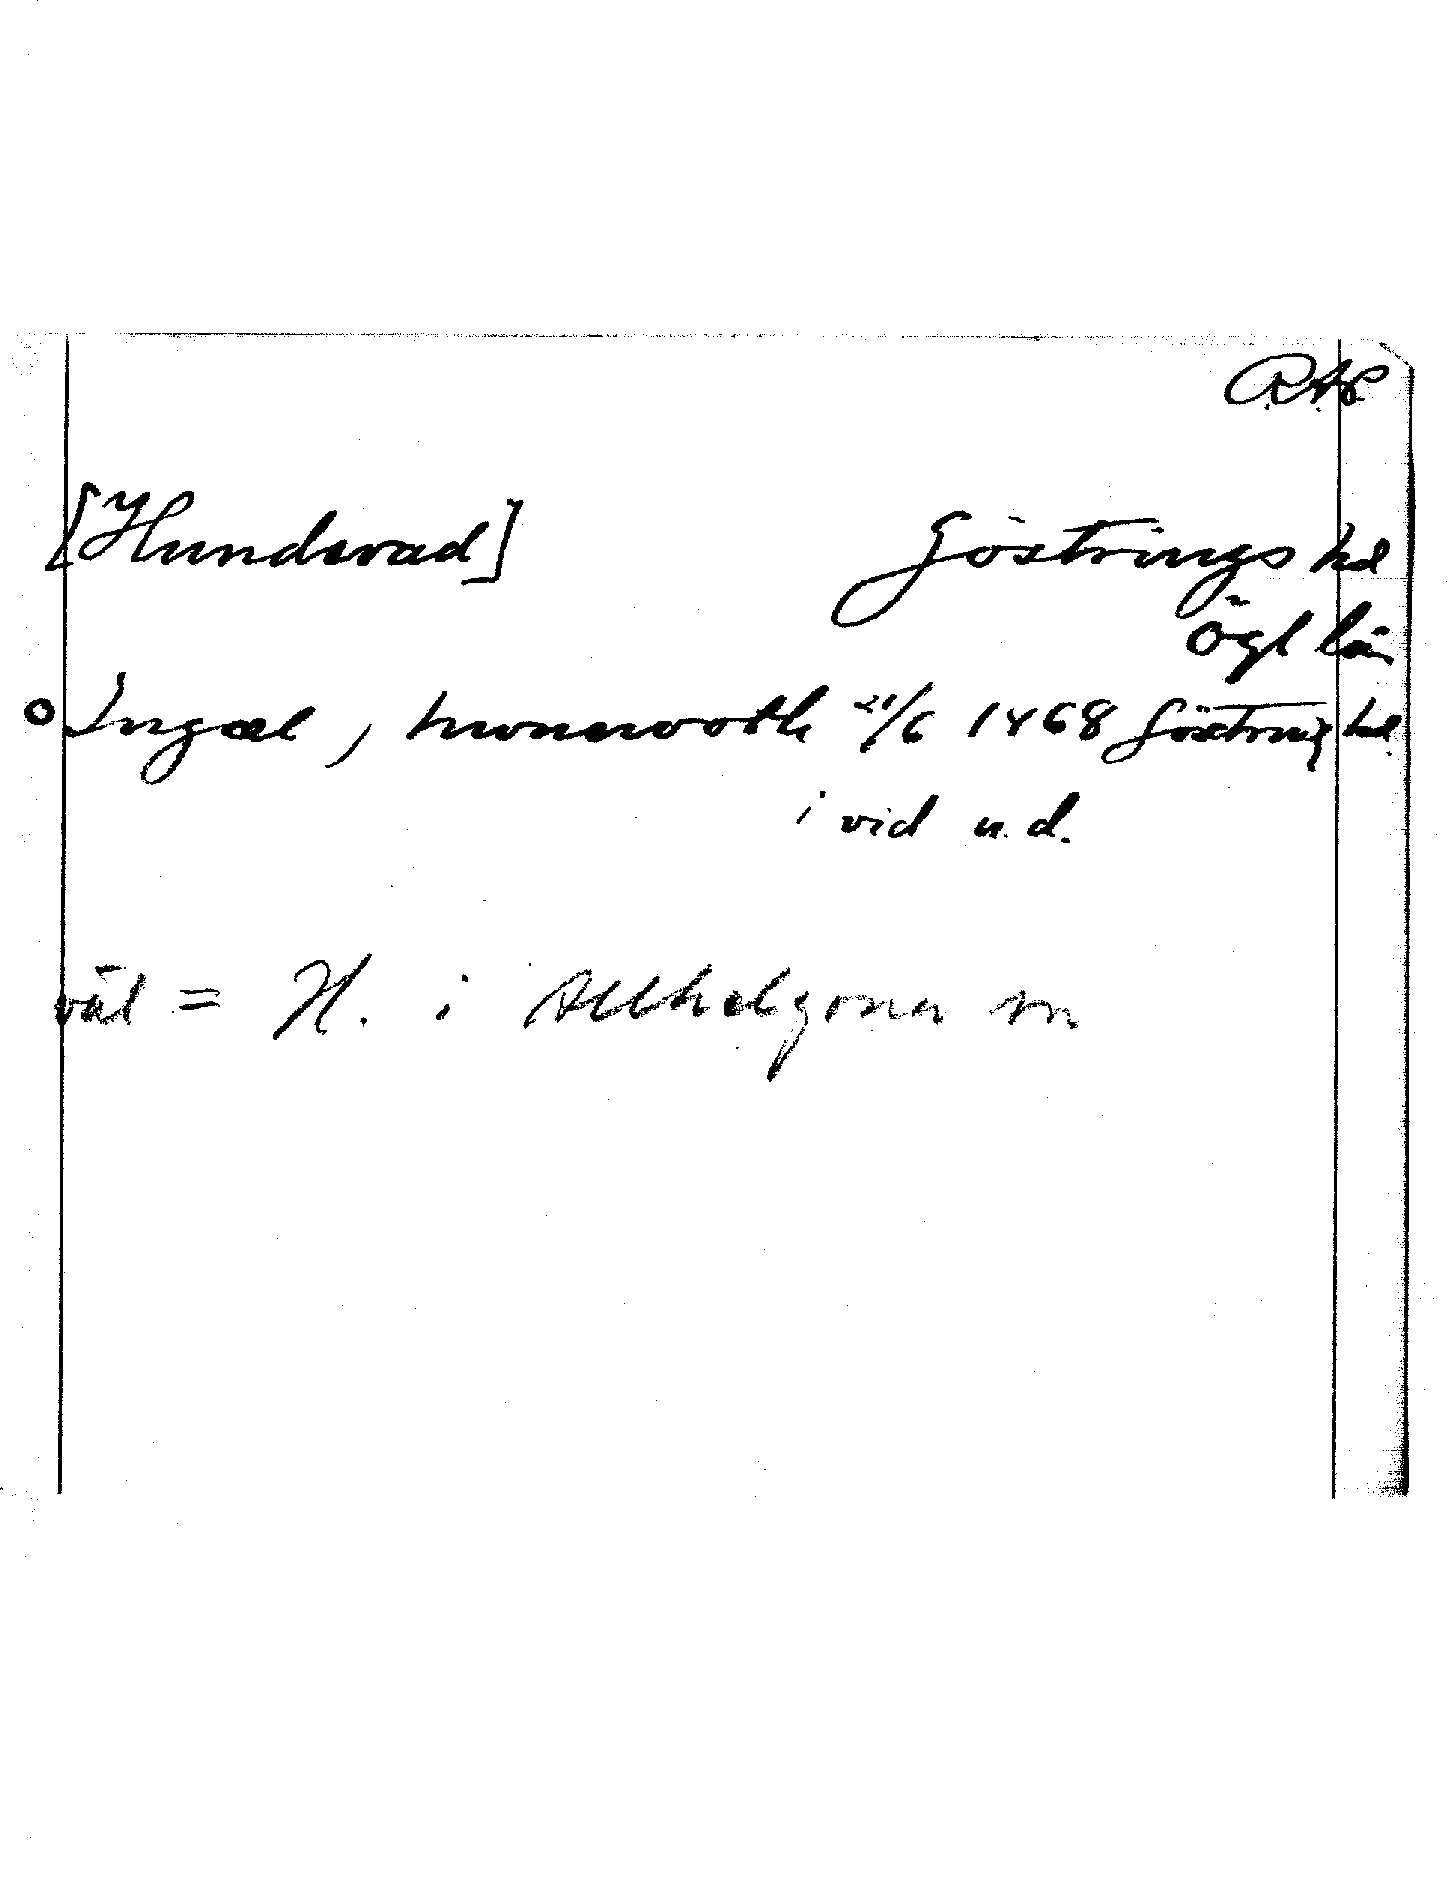 RAP
[Hundsvad] Göstrings hd
Ögl län
Ingæl, hwnswodh 21/6 1468 Göstring hd
i vid u.d.
väl = H. i Allhelgona sn